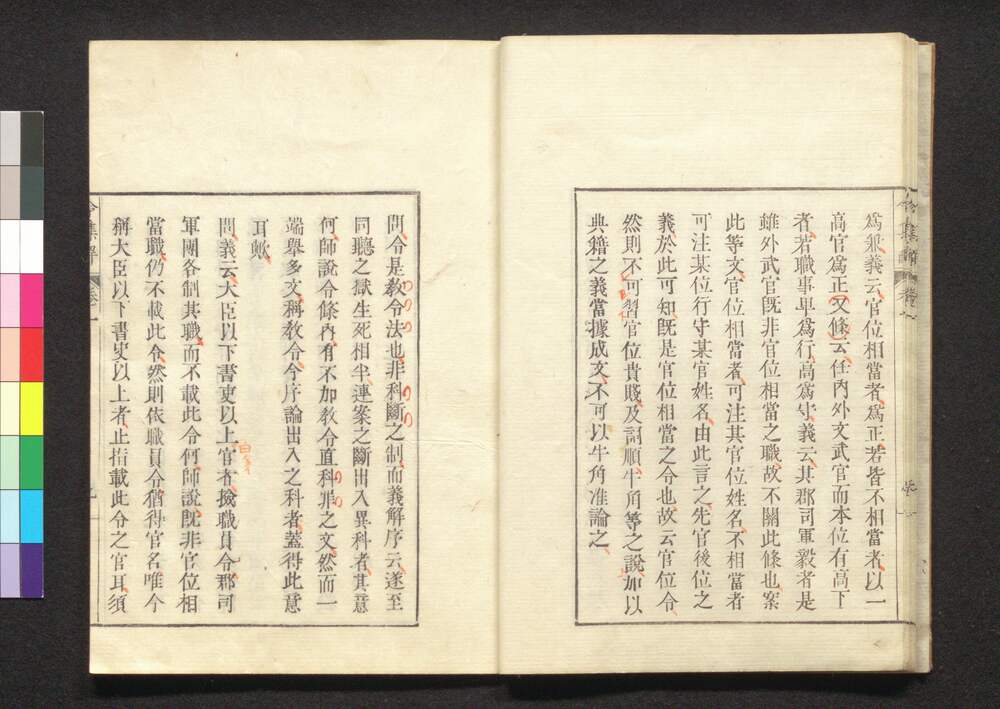 爲兼義云官位相當者爲正若皆不相當者以一
高官爲正又條云任內外文武官而本位有高下
者若職事卑爲行高爲守義云其郡司軍毅者是
雖外武官既非官位相當之職故不關此條也案
此等文官位相當者可注其官位姓名不相當者
可注某位行守某官姓名由此言之先官後位之
義於此可知既是官位相當之令也故云官位令
然則不可習官位貴賤及詞順牛角等之說加以
典籍之義當據成文不可以牛角准論之
問令是教令法也非科斷之制而義解序云遂至
同聽之獄生死相半連案之斷出入異科者其意
何師說令條內有不加教令直科罪之文然而一
端舉多文稱教令令序論出入之科者蓋得此意
耳歟
問義云大臣以下書吏以上官者撿職員令郡司
軍團各制其職而不載此令何師說既非官位相
當職仍不載此令然則依職員令猶得官名唯今
稱大臣以下書吏以上者止指載此令之官耳須
令集解 卷一